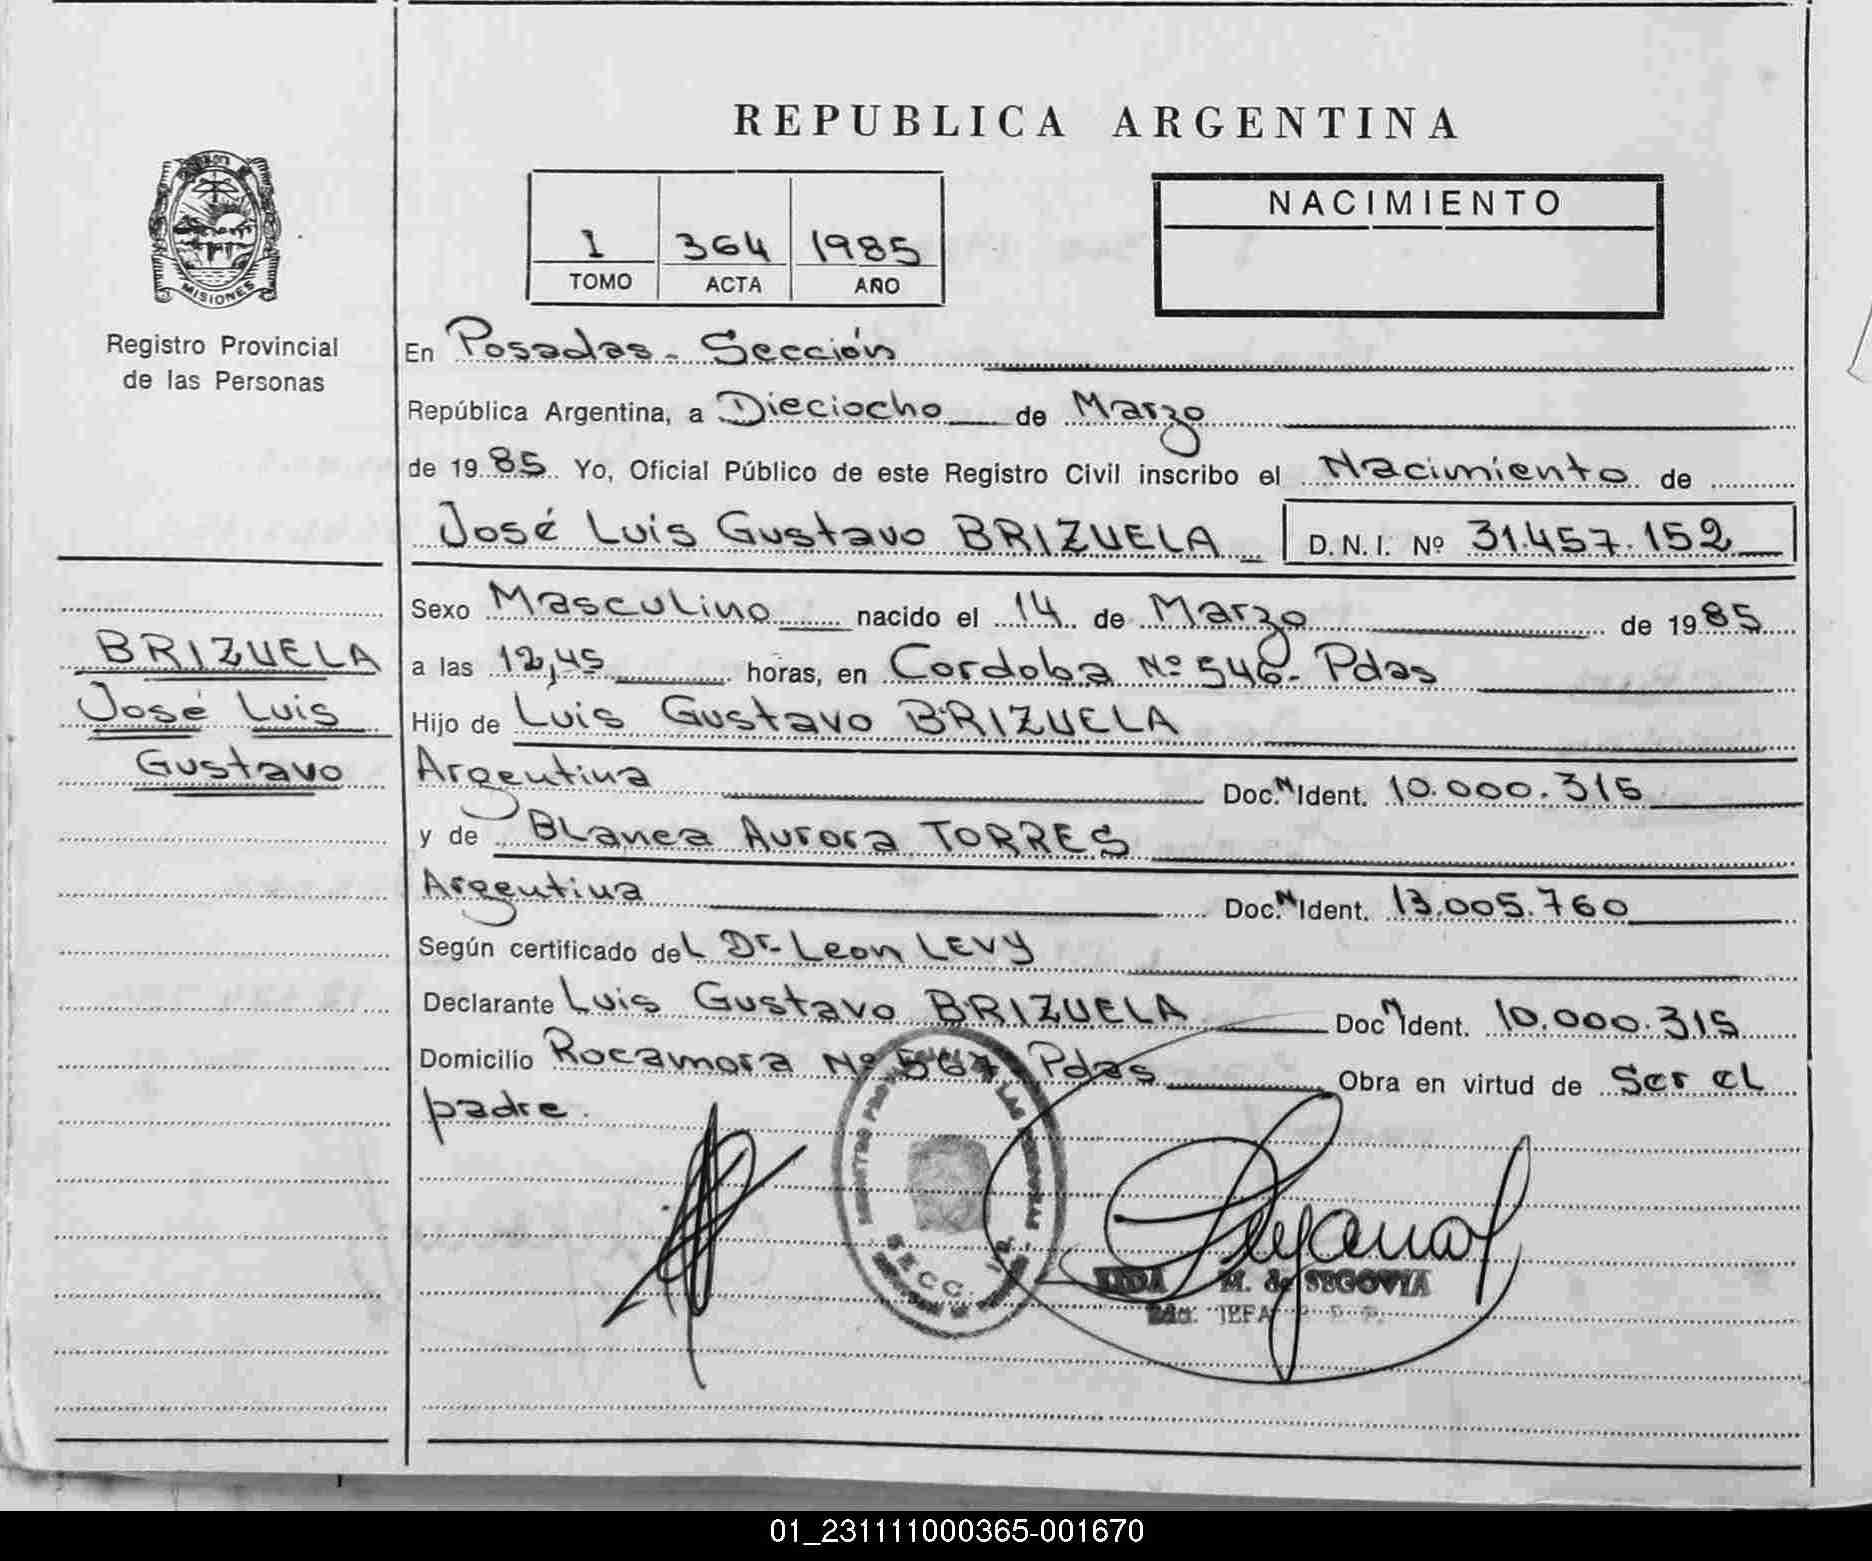 REPUBLICA ARGENTINA
MISIONES
Registro Provincial
de las Personas
BRIZUELA
José Luis
Gustavo
I 364 1985
TOMO ACTA AÑO
NACIMIENTO
En Posadas - Sección
República Argentina, a Dieciocho de Marzo
de 1985. Yo, Oficial Público de este Registro Civil inscribo el Nacimiento de
José Luis Gustavo BRIZUELA D.N.I. Nº 31.457.152
Sexo Masculino nacido el 14 de Marzo de 1985
a las 12,45 horas, en Cordoba Nº 546- Pdas
Hijo de Luis Gustavo BRIZUELA
Argentina Doc. N Ident. 10.000.315
y de Blanca Aurora TORRES
Argentina Doc. N Ident. 13.005.760
Según certificado del Dr. Leon LEVY
Declarante Luis Gustavo BRIZUELA Doc N Ident. 10.000.315
Domicilio Rocamora Nº 567 Pdas Obra en virtud de Ser el
padre.
SECC.
LIDA M. de SEGOVIA
JEFA
01_231111000365-001670